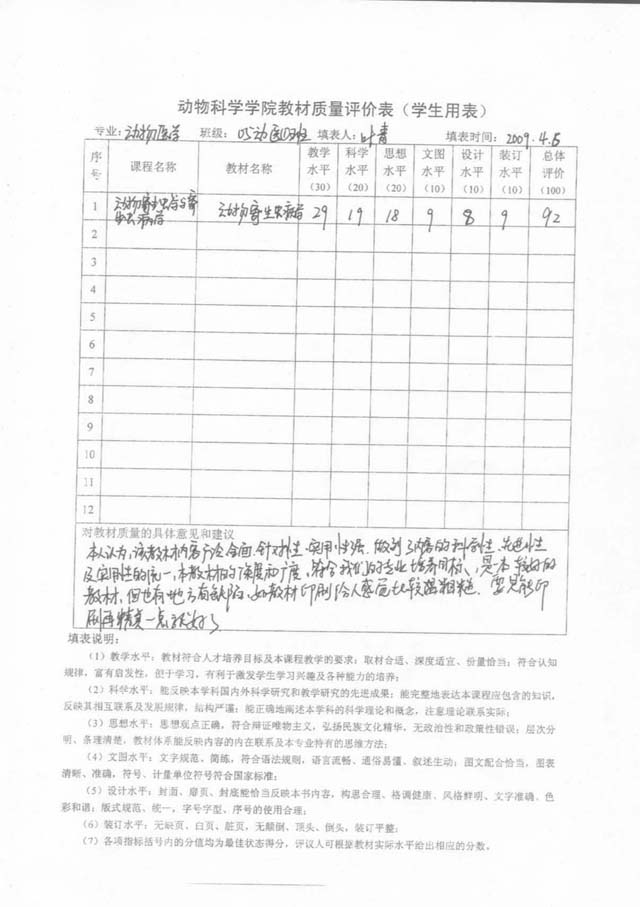 动物科学学院教材质量评价表（学生用表）
专业：动物医学 班级：05动医(1)班 填表人：叶青 填表时间：2009.4.5
序号 课程名称 教材名称 教学水平（30） 科学水平（20） 思想水平（20） 文图水平（10） 设计水平（10） 装订水平（10） 总体评价（100）
1 动物寄生虫学与寄生虫病学 动物寄生虫病学 29 19 18 9 8 9 92
2
3
4
5
6
7
8
9
10
11
12
对教材质量的具体意见和建议
本人认为，该教材内容广泛全面，针对性、实用性强，做到了内容的科学性、先进性
及实用性的统一，本教材的深度和广度，符合我们的专业培养目标，是本较好的
教材，但也有地方有缺陷，如教材印刷给人感觉比较粗糙。要是能印
刷再精美一点就好了
填表说明：
（1）教学水平：教材符合人才培养目标及本课程教学的要求；取材合适、深度适宜、份量恰当；符合认知
规律，富有启发性，但于学习，有利于激发学生学习兴趣及各种能力的培养；
（2）科学水平：能反映本学科国内外科学研究和教学研究的先进成果；能完整地表达本课程应包含的知识，
反映其相互联系及发展规律，结构严谨；能正确地阐述本学科的科学理论和概念，注意理论联系实际；
（3）思想水平：思想观点正确，符合辩证唯物主义，弘扬民族文化精华，无政治性和政策性错误；层次分
明、条理清楚，教材体系能反映内容的内在联系及本专业特有的思维方法；
（4）文图水平：文字规范、简练，符合语法规则，语言流畅、通俗易懂、叙述生动；图文配合恰当，图表
清晰、准确，符号、计量单位符号符合国家标准；
（5）设计水平：封面、扉页、封底能恰当反映本书内容，构思合理、格调健康、风格鲜明、文字准确、色
彩和谐；版式规范、统一，字号字型、序号的使用合理；
（6）装订水平：无缺页、白页、脏页，无颠倒、顶头、倒头，装订平整；
（7）各项指标括号内的分值均为最佳状态得分，评议人可根据教材实际水平给出相应的分数。